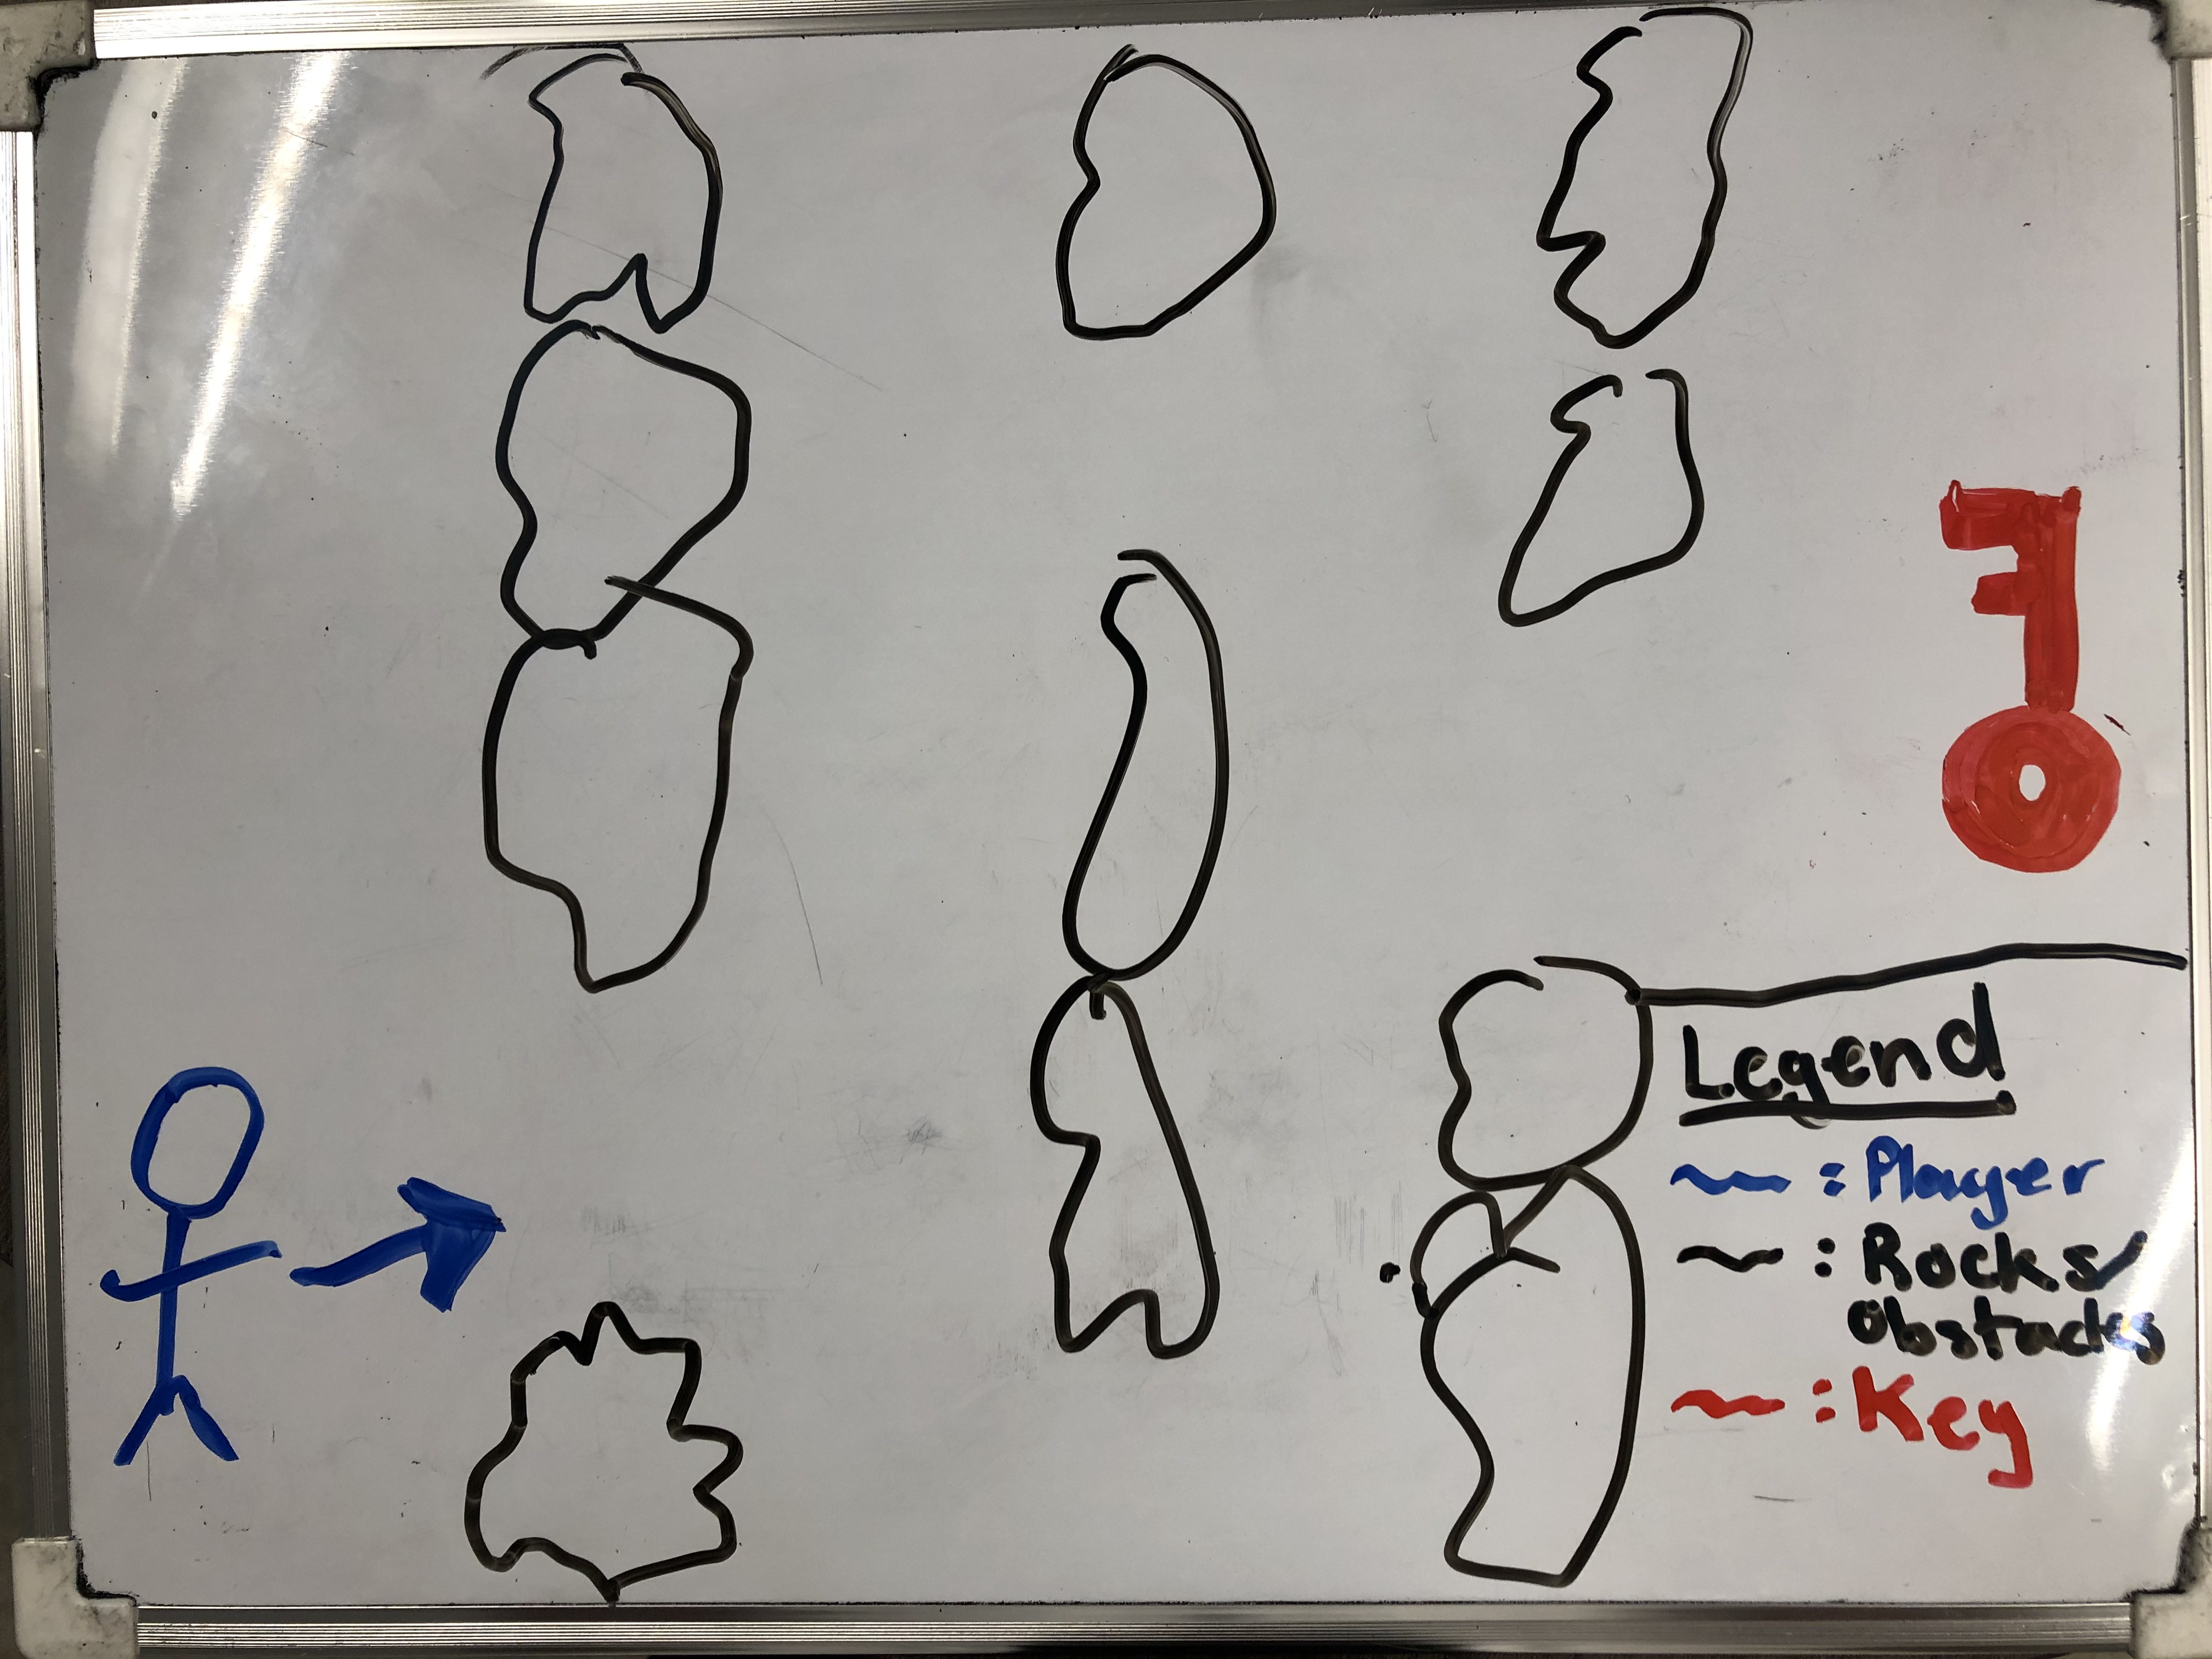 Legend
: Player
: Rocks/
obstacles
: Key